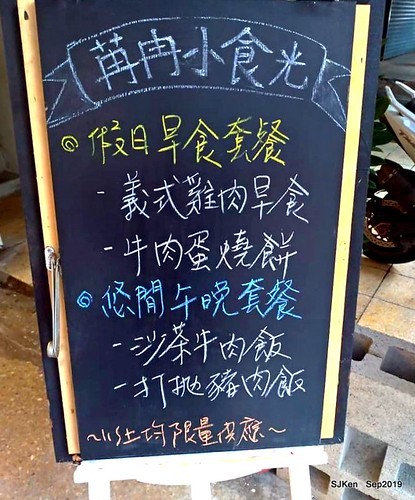 苒冉小食光
◎假日早食套餐
-義式雞肉早食
-牛肉蛋燒餅
◎悠閒午晚套餐
-沙茶牛肉飯
-打拋豬肉飯
~以上均限量供應~
SJKen Sep2019